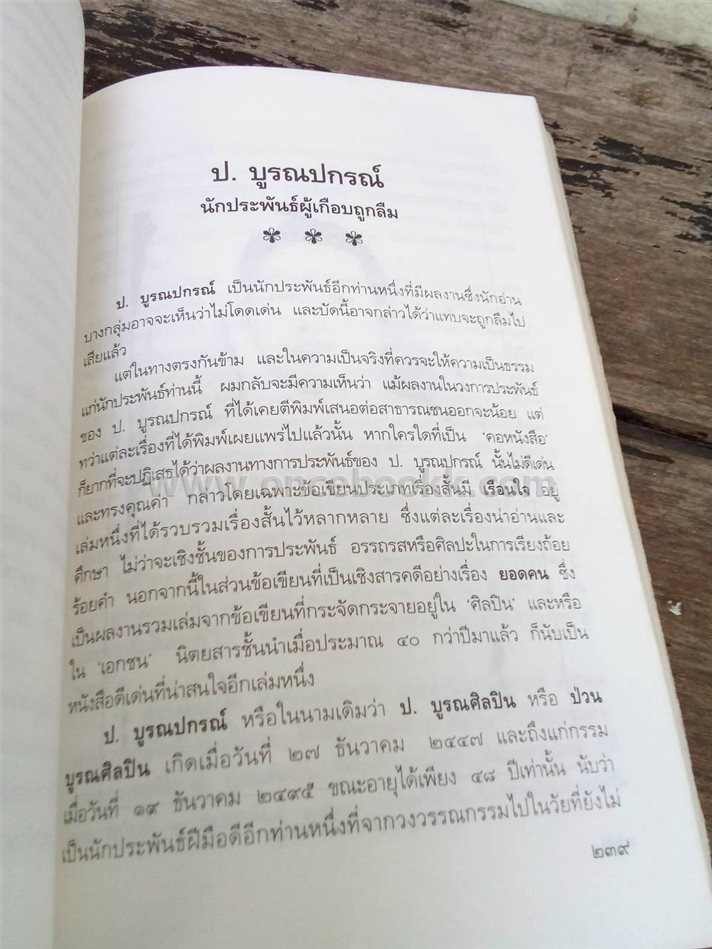 ป. บูรณปกรณ์
นักประพันธ์ผู้เกือบถูกลืม
ป. บูรณปกรณ์ เป็นนักประพันธ์อีกท่านหนึ่งที่มีผลงานซึ่งนักอ่าน
บางกลุ่มอาจจะเห็นว่าไม่โดดเด่น และบัดนี้อาจกล่าวได้ว่าแทบจะถูกลืมไป
เสียแล้ว
แต่ในทางตรงกันข้าม และในความเป็นจริงที่ควรจะให้ความเป็นธรรม
แก่นักประพันธ์ท่านนี้ ผมกลับจะมีความเห็นว่า แม้ผลงานในวงการประพันธ์
ของ ป. บูรณปกรณ์ ที่ได้เคยตีพิมพ์เสนอต่อสาธารณชนออกจะน้อย แต่
ทว่าแต่ละเรื่องที่ได้พิมพ์เผยแพร่ไปแล้วนั้น หากใครใดที่เป็น 'คอหนังสือ'
ก็ยากที่จะปฏิเสธได้ว่าผลงานทางการประพันธ์ของ ป. บูรณปกรณ์ นั้นไม่ดีเด่น
และทรงคุณค่า กล่าวโดยเฉพาะข้อเขียนประเภทเรื่องสั้นมี เรือนใจ อยู่
เล่มหนึ่งที่ได้รวบรวมเรื่องสั้นไว้หลากหลาย ซึ่งแต่ละเรื่องน่าอ่านและ
ศึกษา ไม่ว่าจะเชิงชั้นของการประพันธ์ อรรถรสหรือศิลปะในการเรียงถ้อย
ร้อยคำ นอกจากนี้ในส่วนข้อเขียนที่เป็นเชิงสารคดีอย่างเรื่อง ยอดคน ซึ่ง
เป็นผลงานรวมเล่มจากข้อเขียนที่กระจัดกระจายอยู่ใน 'ศิลปิน' และหรือ
ใน 'เอกชน' นิตยสารชั้นนำเมื่อประมาณ ๔๐ กว่าปีมาแล้ว ก็นับเป็น
หนังสือดีเด่นที่น่าสนใจอีกเล่มหนึ่ง
ป. บูรณปกรณ์ หรือในนามเดิมว่า ป. บูรณศิลปิน หรือ ป่วน
บูรณศิลปิน เกิดเมื่อวันที่ ๒๗ ธันวาคม ๒๔๔๗ และถึงแก่กรรม
เมื่อวันที่ ๑๙ ธันวาคม ๒๔๙๕ ขณะอายุได้เพียง ๔๘ ปีเท่านั้น นับว่า
เป็นนักประพันธ์ฝีมือดีอีกท่านหนึ่งที่จากวงวรรณกรรมไปในวัยที่ยังไม่
๒๓๙